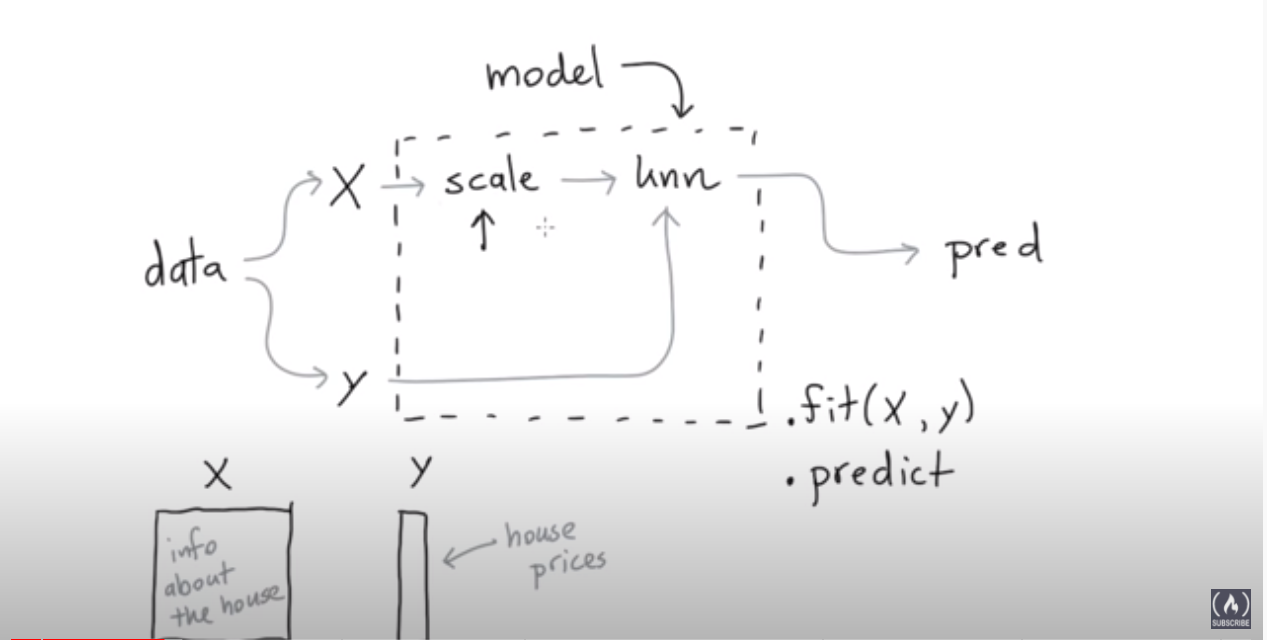 model
X scale knn
data
pred
y
.fit(X, y)
.predict
X y
info
about
the house
house
prices
SUBSCRIBE